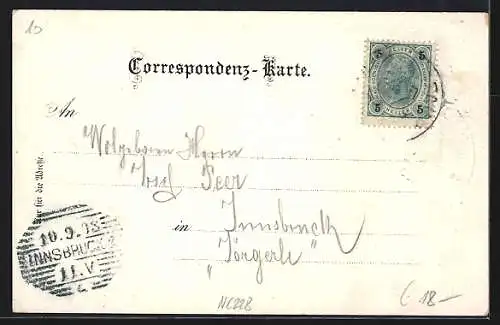 10
Correspondenz-Karte.
5 5
HELLER
5 5
An
Wolgeboren Herrn
Josef Peer
in Innsbruck
„Jörgerli"
Nur für die Adresse.
10.9.03
INNSBRUCK 2
11.V
NC22B
18—